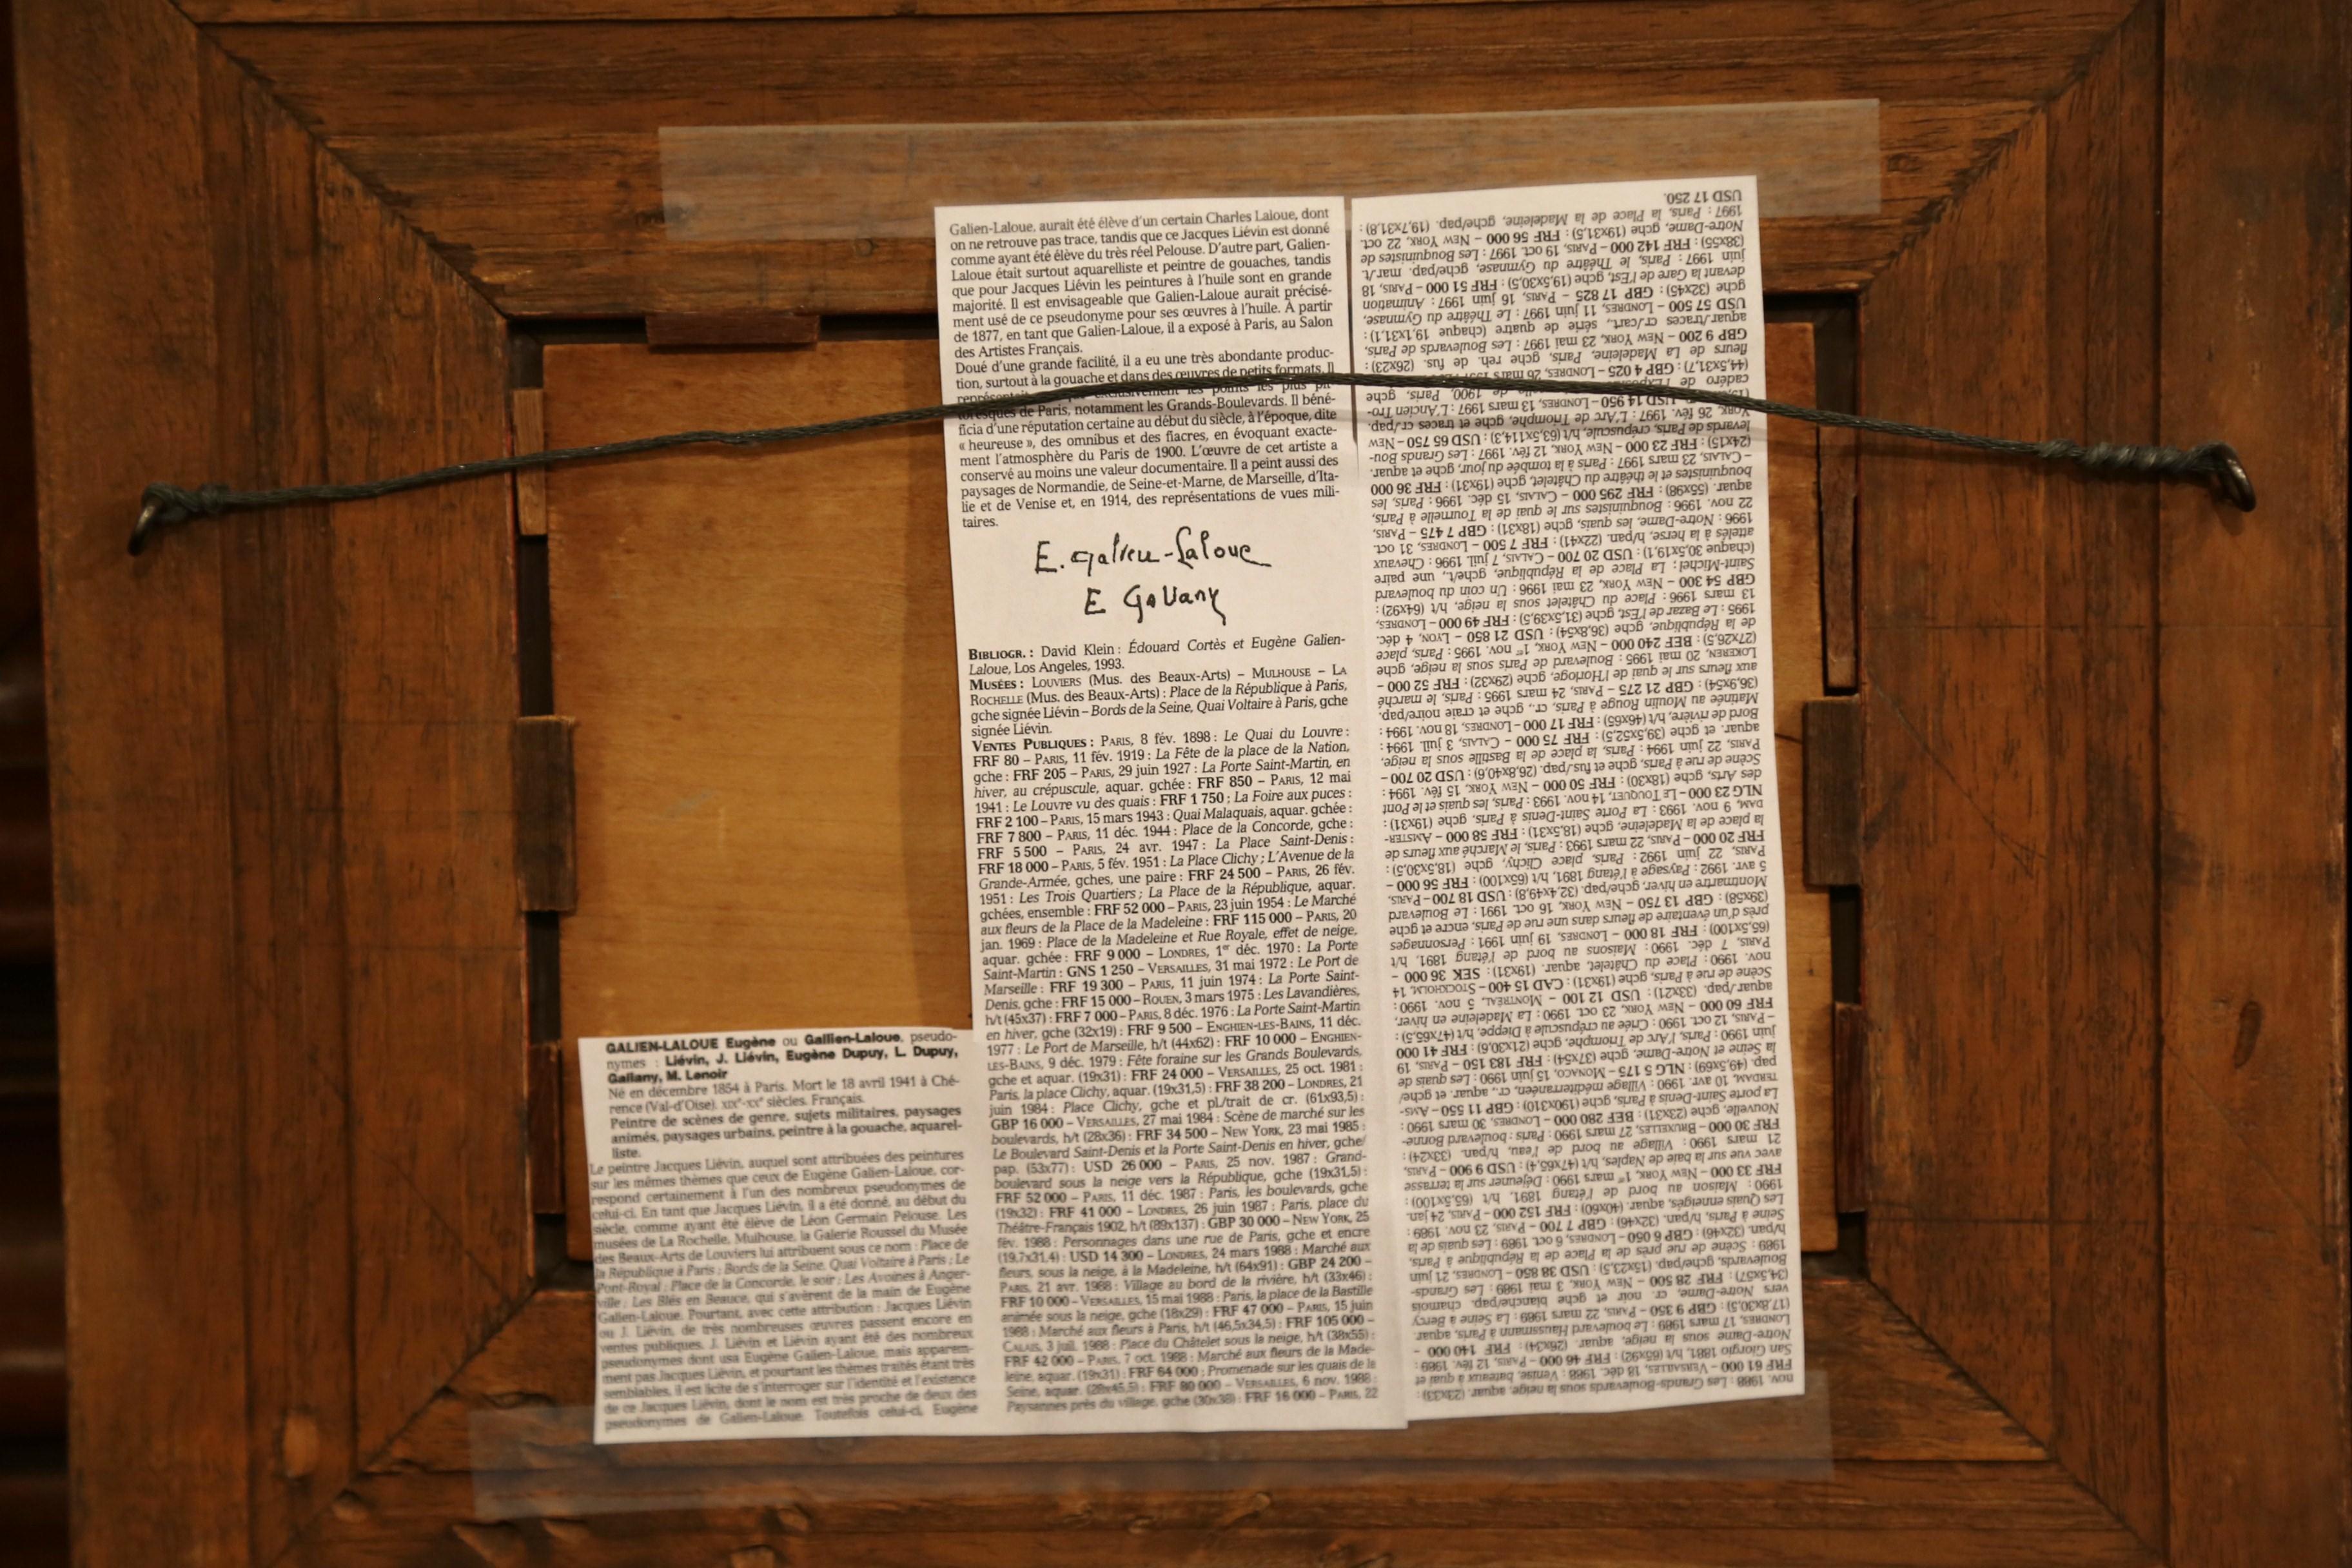 GALIEN-LALOUE Eugène ou Gallien-Laloue, pseudo-
nymes : Liévin, J. Liévin, Eugène Dupuy, L. Dupuy,
Gallany, M. Lenoir
Né en décembre 1854 à Paris. Mort le 18 avril 1941 à Ché-
rence (Val-d'Oise). XIXe-XXe siècles. Français.
Peintre de scènes de genre, sujets militaires, paysages
animés, paysages urbains, peintre à la gouache, aquarel-
liste.
Le peintre Jacques Liévin, auquel sont attribuées des peintures
sur les mêmes thèmes que ceux de Eugène Galien-Laloue, cor-
respond certainement à l'un des nombreux pseudonymes de
celui-ci. En tant que Jacques Liévin, il a été donné, au début du
siècle, comme ayant été élève de Léon Germain Pelouse. Les
musées de La Rochelle, Mulhouse, la Galerie Roussel du Musée
des Beaux-Arts de Louviers lui attribuent sous ce nom : Place de
la République à Paris ; Bords de la Seine, Quai Voltaire à Paris ; Le
Pont-Royal ; Place de la Concorde, le soir ; Les Avoines à Anger-
ville ; Les Blés en Beauce, qui s'avèrent de la main de Eugène
Galien-Laloue. Pourtant, avec cette attribution : Jacques Liévin
ou J. Liévin, de très nombreuses œuvres passent encore en
ventes publiques. J. Liévin et Liévin ayant été des nombreux
pseudonymes dont usa Eugène Galien-Laloue, mais apparem-
ment pas Jacques Liévin, et pourtant les thèmes traités étant très
semblables, il est licite de s'interroger sur l'identité et l'existence
de ce Jacques Liévin, dont le nom est très proche de deux des
pseudonymes de Galien-Laloue. Toutefois celui-ci, Eugène
Galien-Laloue, aurait été élève d'un certain Charles Laloue, dont
on ne retrouve pas trace, tandis que ce Jacques Liévin est donné
comme ayant été élève du très réel Pelouse. D'autre part, Galien-
Laloue était surtout aquarelliste et peintre de gouaches, tandis
que pour Jacques Liévin les peintures à l'huile sont en grande
majorité. Il est envisageable que Galien-Laloue aurait précisé-
ment usé de ce pseudonyme pour ses œuvres à l'huile. À partir
de 1877, en tant que Galien-Laloue, il a exposé à Paris, au Salon
des Artistes Français.
Doué d'une grande facilité, il a eu une très abondante produc-
tion, surtout à la gouache et dans des œuvres de petits formats. Il
représentait exclusivement les points les plus pit-
toresques de Paris, notamment les Grands-Boulevards. Il béné-
ficia d'une réputation certaine au début du siècle, à l'époque, dite
« heureuse », des omnibus et des fiacres, en évoquant exacte-
ment l'atmosphère du Paris de 1900. L'œuvre de cet artiste a
conservé au moins une valeur documentaire. Il a peint aussi des
paysages de Normandie, de Seine-et-Marne, de Marseille, d'Ita-
lie et de Venise et, en 1914, des représentations de vues mili-
taires.
E. Galien-Laloue
E Gallany
BIBLIOGR. : David Klein : Édouard Cortès et Eugène Galien-
Laloue, Los Angeles, 1993.
MUSÉES : LOUVIERS (Mus. des Beaux-Arts) – MULHOUSE – LA
ROCHELLE (Mus. des Beaux-Arts) : Place de la République à Paris,
gche signée Liévin – Bords de la Seine, Quai Voltaire à Paris, gche
signée Liévin.
VENTES PUBLIQUES : PARIS, 8 fév. 1898 : Le Quai du Louvre :
FRF 80 – PARIS, 11 fév. 1919 : La Fête de la place de la Nation,
gche : FRF 205 – PARIS, 29 juin 1927 : La Porte Saint-Martin, en
hiver, au crépuscule, aquar. gchée : FRF 850 – PARIS, 12 mai
1941 : Le Louvre vu des quais : FRF 1 750 ; La Foire aux puces :
FRF 2 100 – PARIS, 15 mars 1943 : Quai Malaquais, aquar. gchée :
FRF 7 800 – PARIS, 11 déc. 1944 : Place de la Concorde, gche :
FRF 5 500 – PARIS, 24 avr. 1947 : La Place Saint-Denis :
FRF 18 000 – PARIS, 5 fév. 1951 : La Place Clichy ; L'Avenue de la
Grande-Armée, gches, une paire : FRF 24 500 – PARIS, 26 fév.
1951 : Les Trois Quartiers ; La Place de la République, aquar.
gchées, ensemble : FRF 52 000 – PARIS, 23 juin 1954 : Le Marché
aux fleurs de la Place de la Madeleine : FRF 115 000 – PARIS, 20
jan. 1969 : Place de la Madeleine et Rue Royale, effet de neige,
aquar. gchée : FRF 9 000 – LONDRES, 1er déc. 1970 : La Porte
Saint-Martin : GNS 1 250 – VERSAILLES, 31 mai 1972 : Le Port de
Marseille : FRF 19 300 – PARIS, 11 juin 1974 : La Porte Saint-
Denis, gche : FRF 15 000 – ROUEN, 3 mars 1975 : Les Lavandières,
h/t (45x37) : FRF 7 000 – PARIS, 8 déc. 1976 : La Porte Saint-Martin
en hiver, gche (32x19) : FRF 9 500 – ENGHIEN-LES-BAINS, 11 déc.
1977 : Le Port de Marseille, h/t (44x62) : FRF 10 000 – ENGHIEN-
LES-BAINS, 9 déc. 1979 : Fête foraine sur les Grands Boulevards,
gche et aquar. (19x31) : FRF 24 000 – VERSAILLES, 25 oct. 1981 :
Paris, la place Clichy, aquar. (19x31,5) : FRF 38 200 – LONDRES, 21
juin 1984 : Place Clichy, gche et pl/trait de cr. (61x93,5) :
GBP 16 000 – VERSAILLES, 27 mai 1984 : Scène de marché sur les
boulevards, h/t (28x36) : FRF 34 500 – NEW YORK, 23 mai 1985 :
Le Boulevard Saint-Denis et la Porte Saint-Denis en hiver, gche/
pap. (53x77) : USD 26 000 – PARIS, 25 nov. 1987 : Grand-
boulevard sous la neige vers la République, gche (19x31,5) :
FRF 52 000 – PARIS, 11 déc. 1987 : Paris, les boulevards, gche
(19x32) : FRF 41 000 – LONDRES, 26 juin 1987 : Paris, place du
Théâtre-Français 1902, h/t (89x137) : GBP 30 000 – NEW YORK, 25
fév. 1988 : Personnages dans une rue de Paris, gche et encre
(19,7x31,4) : USD 14 300 – LONDRES, 24 mars 1988 : Marché aux
fleurs, sous la neige, à la Madeleine, h/t (64x91) : GBP 24 200 –
PARIS, 21 avr. 1988 : Village au bord de la rivière, h/t (33x46) :
FRF 10 000 – VERSAILLES, 15 mai 1988 : Paris, la place de la Bastille
animée sous la neige, gche (18x29) : FRF 47 000 – PARIS, 15 juin
1988 : Marché aux fleurs à Paris, h/t (46,5x34,5) : FRF 105 000 –
CALAIS, 3 juil. 1988 : Place du Châtelet sous la neige, h/t (38x55) :
FRF 42 000 – PARIS, 7 oct. 1988 : Marché aux fleurs de la Made-
leine, aquar. (19x31) : FRF 64 000 ; Promenade sur les quais de la
Seine, aquar. (28x45,5) : FRF 80 000 – VERSAILLES, 6 nov. 1988 :
Paysannes près du village, gche (30x38) : FRF 16 000 – PARIS, 22
nov. 1988 : Les Grands-Boulevards sous la neige, aquar. (23x33) :
FRF 61 000 – VERSAILLES, 18 déc. 1988 : Venise, bateaux à quai et
San Giorgio 1881, h/t (65x92) : FRF 46 000 – PARIS, 12 fév. 1989 :
Notre-Dame sous la neige, aquar. (26x34) : FRF 140 000 –
LONDRES, 17 mars 1989 : Le boulevard Haussmann à Paris, aquar.
(17,8x30,5) : GBP 9 350 – PARIS, 22 mars 1989 : La Seine à Bercy
vers Notre-Dame, cr. noir et gche blanche/pap. chamois
(34,5x57) : FRF 28 500 – NEW YORK, 3 mai 1989 : Les Grands-
Boulevards, gche/pap. (15x23,5) : USD 38 850 – LONDRES, 21 juin
1989 : Scène de rue près de la Place de la République à Paris,
h/pan. (32x46) : GBP 6 050 – LONDRES, 6 oct. 1989 : Les quais de la
Seine à Paris, h/pan. (32x46) : GBP 7 700 – PARIS, 23 nov. 1989 :
Les Quais enneigés, aquar. (40x60) : FRF 152 000 – PARIS, 24 jan.
1990 : Maison au bord de l'étang 1891, h/t (65,5x100) :
FRF 33 000 – NEW YORK, 1er mars 1990 : Déjeuner sur la terrasse
avec vue sur la baie de Naples, h/t (47x65,4) : USD 9 900 – PARIS,
21 mars 1990 : Village au bord de l'eau, h/pan. (33x24) :
FRF 30 000 – BRUXELLES, 27 mars 1990 : Paris : boulevard Bonne-
Nouvelle, gche (23x31) : BEF 280 000 – LONDRES, 30 mars 1990 :
La porte Saint-Denis à Paris, gche (190x310) : GBP 11 550 – AMS-
TERDAM, 10 avr. 1990 : Village méditerranéen, cr., aquar. et gche/
pap. (49,5x69) : NLG 5 175 – MONACO, 15 juin 1990 : Les quais de
la Seine et Notre-Dame, gche (37x54) : FRF 183 150 – PARIS, 19
juin 1990 : Paris, l'Arc de Triomphe, gche (21x30,6) : FRF 41 000
– PARIS, 12 oct. 1990 : Criée au crépuscule à Dieppe, h/t (47x65,5) :
FRF 60 000 – NEW YORK, 23 oct. 1990 : La Madeleine en hiver,
aquar./pap. (33x21) : USD 12 100 – MONTRÉAL, 5 nov. 1990 :
Scène de rue à Paris, gche (19x31) : CAD 15 400 – STOCKHOLM, 14
nov. 1990 : Place du Châtelet, aquar. (19x31) : SEK 36 000 –
PARIS, 7 déc. 1990 : Maisons au bord de l'étang 1891, h/t
(65,5x100) : FRF 18 000 – LONDRES, 19 juin 1991 : Personnages
près d'un éventaire de fleurs dans une rue de Paris, encre et gche
(39x58) : GBP 13 750 – NEW YORK, 16 oct. 1991 : Le Boulevard
Montmartre en hiver, gche/pap. (32,4x49,8) : USD 18 700 – PARIS,
5 avr. 1992 : Paysage à l'étang 1891, h/t (65x100) : FRF 56 000 –
PARIS, 22 juin 1992 : Paris, place Clichy, gche (18,5x30,5) :
FRF 20 000 – PARIS, 22 mars 1993 : Paris, le Marché aux fleurs de
la place de la Madeleine, gche (18,5x31) : FRF 58 000 – AMSTER-
DAM, 9 nov. 1993 : La Porte Saint-Denis à Paris, gche (19x31) :
NLG 23 000 – LE TOUQUET, 14 nov. 1993 : Paris, les quais et le Pont
des Arts, gche (18x30) : FRF 50 000 – NEW YORK, 15 fév. 1994 :
Scène de rue à Paris, gche et fus/pap. (26,8x40,6) : USD 20 700 –
PARIS, 22 juin 1994 : Paris, la place de la Bastille sous la neige,
aquar. et gche (39,5x52,5) : FRF 75 000 – CALAIS, 3 juil. 1994 :
Bord de rivière, h/t (46x65) : FRF 17 000 – LONDRES, 18 nov. 1994 :
Matinée au Moulin Rouge à Paris, cr., gche et craie noire/pap.
(36,9x54) : GBP 21 275 – PARIS, 24 mars 1995 : Paris, le marché
aux fleurs sur le quai de l'Horloge, gche (29x32) : FRF 52 000 –
LOKEREN, 20 mai 1995 : Boulevard de Paris sous la neige, gche
(27x26,5) : BEF 240 000 – NEW YORK, 1er nov. 1995 : Paris, place
de la République, gche (36,8x54) : USD 21 850 – LYON, 4 déc.
1995 : Le Bazar de l'Est, gche (31,5x39,5) : FRF 49 000 – LONDRES,
13 mars 1996 : Place du Châtelet sous la neige, h/t (64x92) :
GBP 54 300 – NEW YORK, 23 mai 1996 : Un coin du boulevard
Saint-Michel ; La Place de la République, gche/t., une paire
(chaque 30,5x19,1) : USD 20 700 – CALAIS, 7 juil. 1996 : Chevaux
attelés à la herse, h/pan. (22x41) : FRF 7 500 – LONDRES, 31 oct.
1996 : Notre-Dame, les quais, gche (18x31) : GBP 7 475 – PARIS,
22 nov. 1996 : Bouquinistes sur le quai de la Tournelle à Paris,
aquar. (55x98) : FRF 295 000 – CALAIS, 15 déc. 1996 : Paris, les
bouquinistes et le théâtre du Châtelet, gche (19x31) : FRF 36 000
– CALAIS, 23 mars 1997 : Paris à la tombée du jour, gche et aquar.
(24x15) : FRF 23 000 – NEW YORK, 12 fév. 1997 : Les Grands Bou-
levards de Paris, crépuscule, h/t (63,5x114,3) : USD 65 750 – NEW
YORK, 26 fév. 1997 : L'Arc de Triomphe, gche et traces cr/pap.
USD 14 950 – LONDRES, 13 mars 1997 : L'Ancien Tro-
cadéro de de 1900, Paris, gche
(44,5x31,7) : GBP 4 025 – LONDRES, 26 mars
fleurs de La Madeleine, Paris, gche reh. de fus. (26x23) :
GBP 9 200 – NEW YORK, 23 mai 1997 : Les Boulevards de Paris,
aquar/traces cr/cart., série de quatre (chaque 19,1x31,1) :
USD 57 500 – LONDRES, 11 juin 1997 : Le Théâtre du Gymnase,
gche (32x45) : GBP 17 825 – PARIS, 16 juin 1997 : Animation
devant la Gare de l'Est, gche (19,5x30,5) : FRF 51 000 – PARIS, 18
juin 1997 : Paris, le Théâtre du Gymnase, gche/pap. mar./t.
(38x55) : FRF 142 000 – PARIS, 19 oct. 1997 : Les Bouquinistes de
Notre-Dame, gche (19x31,5) : FRF 56 000 – NEW YORK, 22 oct.
1997 : Paris, la Place de la Madeleine, gche/pap. (19,7x31,8) :
USD 17 250.